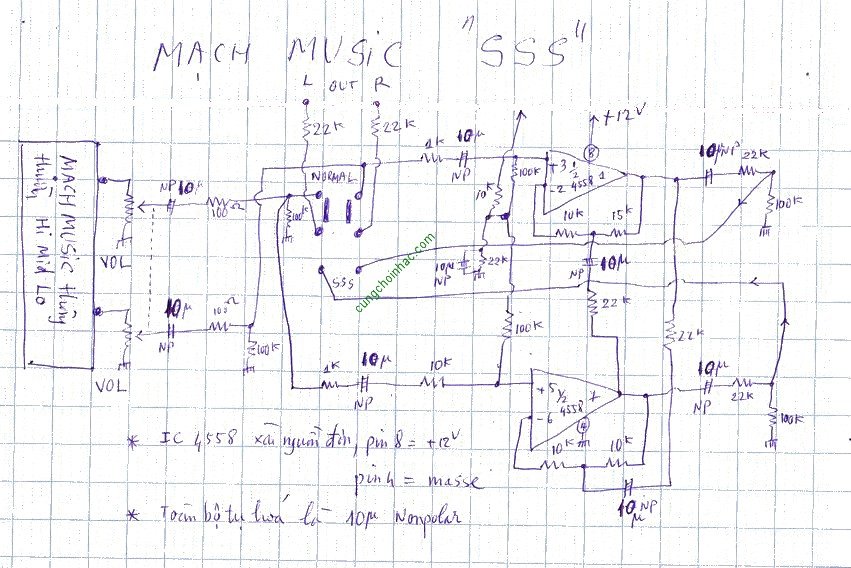 MẠCH MUSIC "SSS"
L OUT R
22K
22K
+12V
1K
10µ
NP
10µNP
22K
8
+3
1/2
1
-2
4558
100K
10K
100K
MẠCH MUSIC Hùng
Hi Mid Lo
NORMAL
NP 10µ
100Ω
100K
10K
15K
VOL
SSS
10µ
NP
22K
10µ
NP
cungchoinhac.com
22K
10µ
NP
100K
100K
22K
VOL
1K
10µ
NP
10K
10µ
NP
22K
100K
+5
1/2
4558
7
-6
4
10K
10K
10µ NP
µ
* IC 4558 xài nguồn đơn, pin 8 = +12V
pin 4 = masse
* Toàn bộ tụ hoá là 10µ Nonpolar